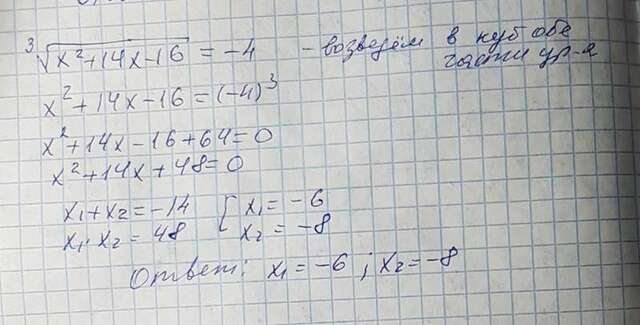 ∛(x²+14x-16) = -4 - возведём в куб обе
части ур-я
x²+14x-16=(-4)³
x²+14x-16+64=0
x²+14x+48=0
x₁+x₂=-14 { x₁=-6
x₁·x₂=48 x₂=-8
Ответ: x₁=-6; x₂=-8